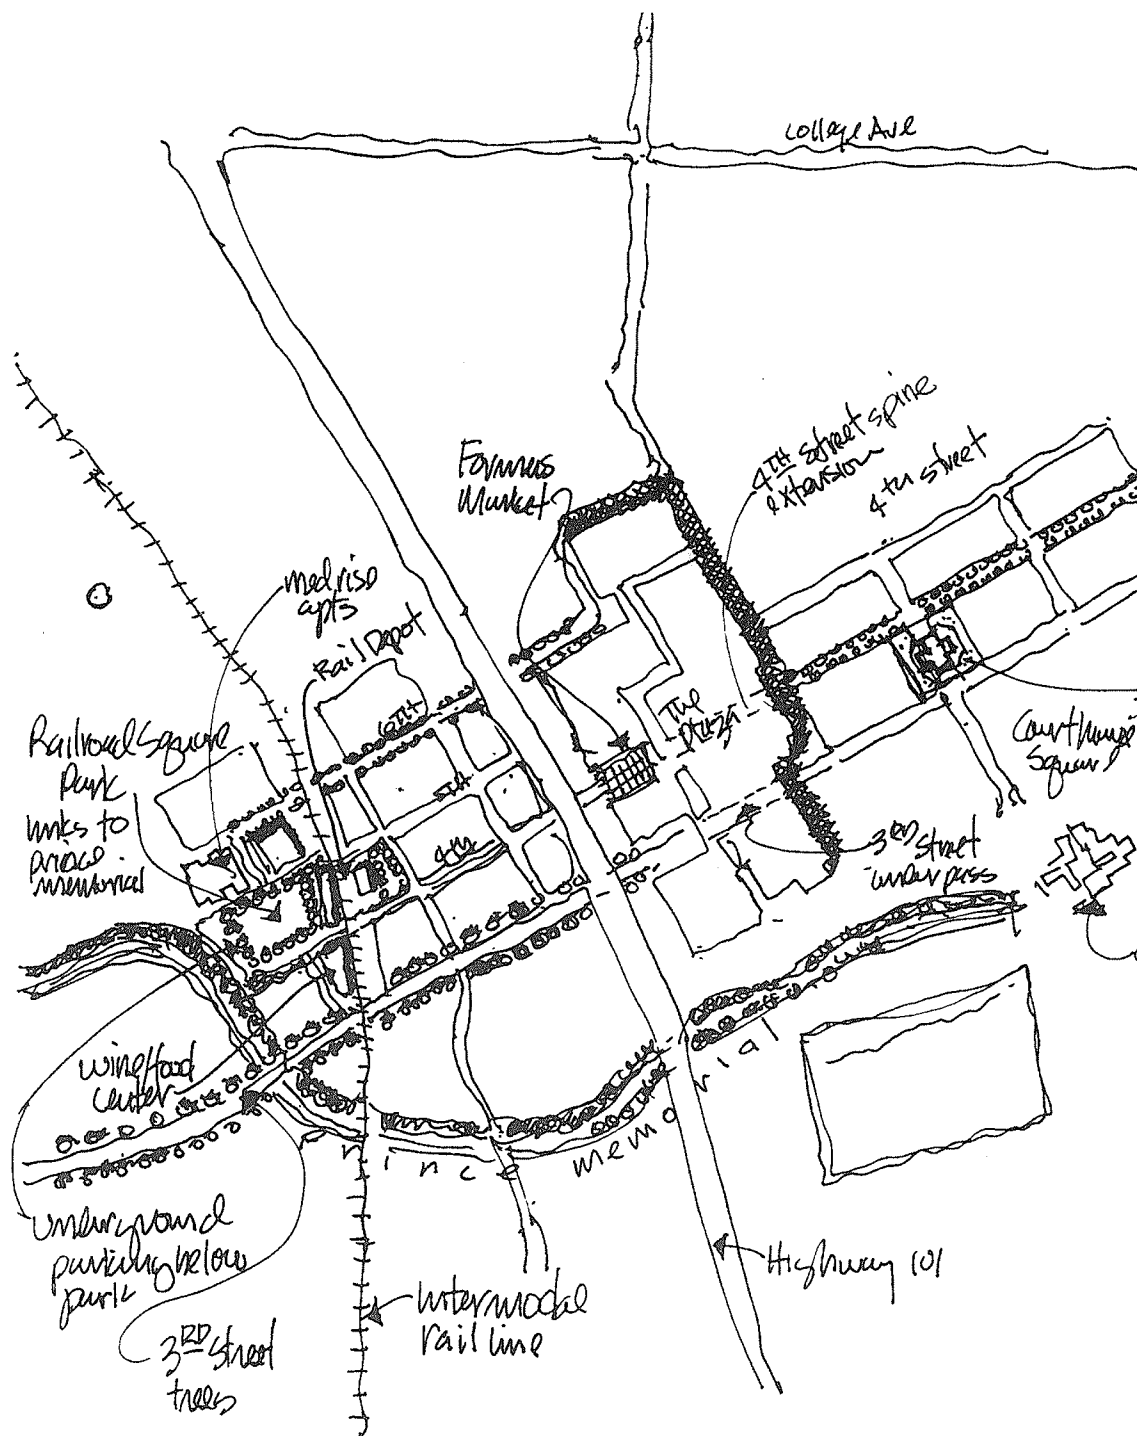 College Ave
4TH street spine
extension
4TH street
Farmers
Market
med rise
apts
Rail Depot
6TH
5TH
4TH
The
Plaza
Railroad Square
Park
links to
prince
memorial
Courthouse
Square
3RD street
underpass
wine/food
center
prince memorial
underground
parking below
park
3RD street
trees
Intermodal
rail line
Highway 101